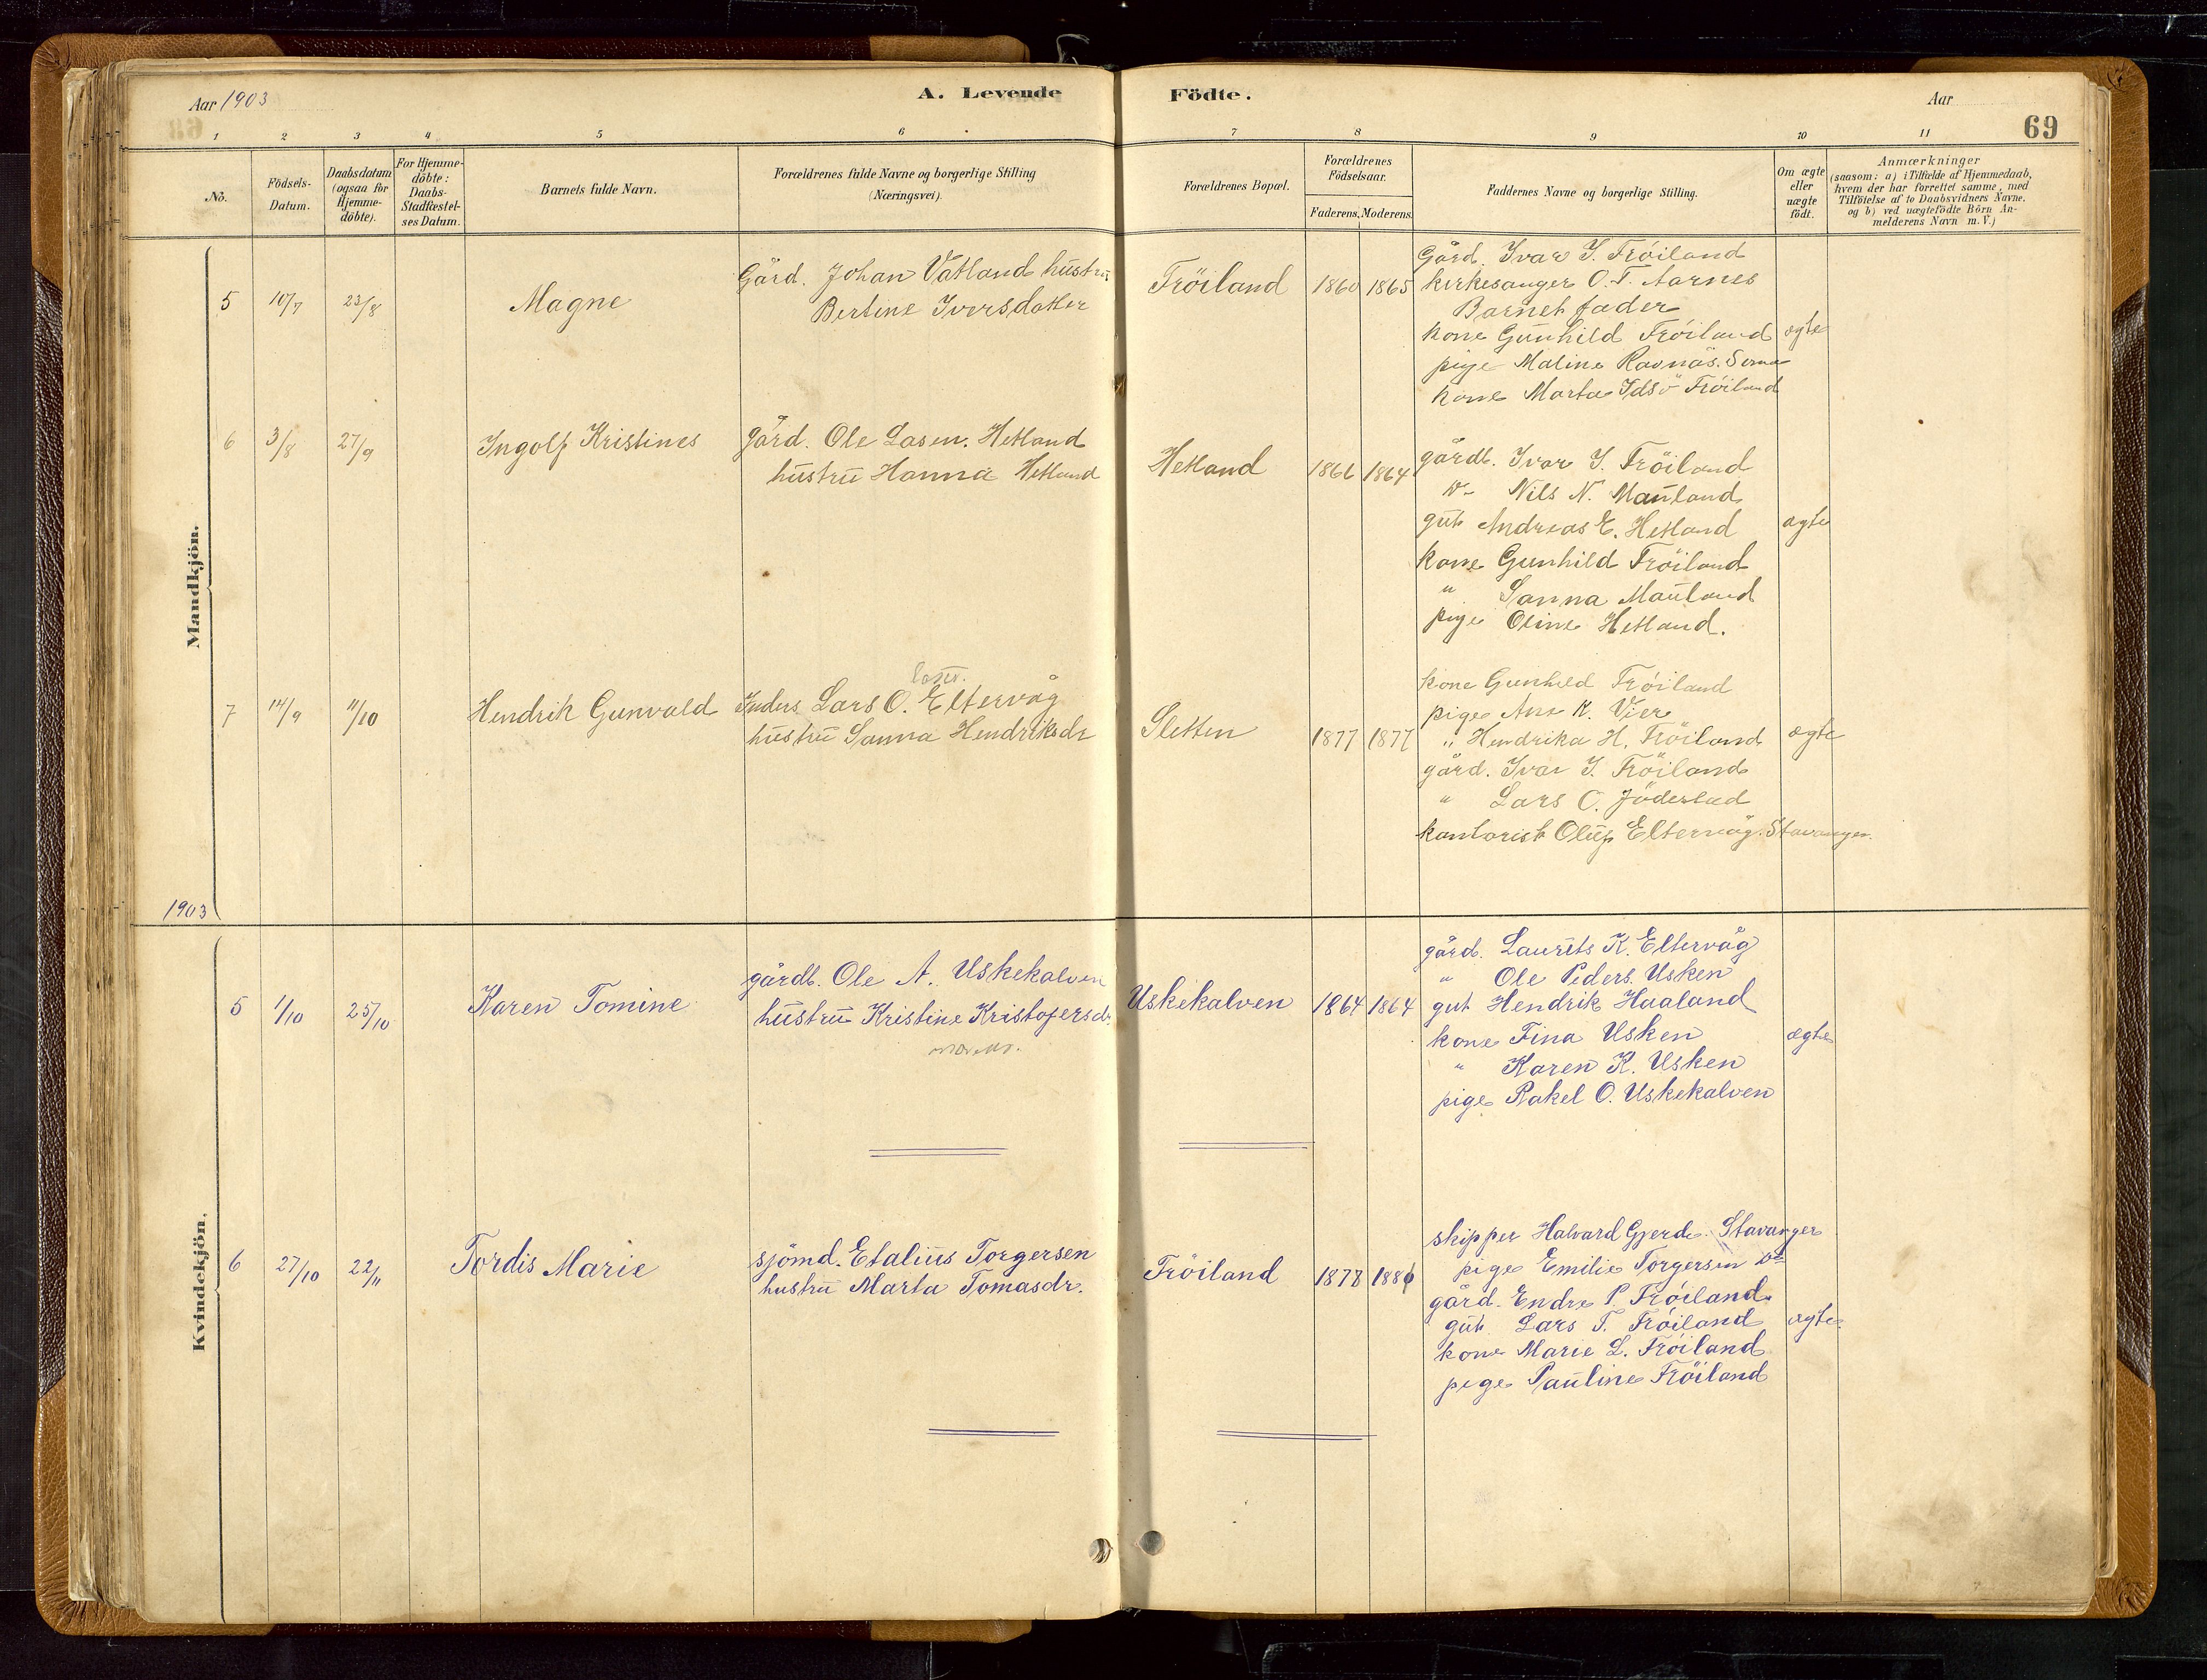 Aar 1903
A. Levende Födte.
Aar
69
1 2 3 4 5 6 7 8 9 10 11
No.
Födsels-Datum.
Daabsdatum (ogsaa for Hjemme-döbte).
For Hjemme-döbte: Daabs-Stadfæstel-ses Datum.
Barnets fulde Navn.
Forældrenes fulde Navne og borgerlige Stilling (Næringsvei).
Forældrenes Bopæl.
Forældrenes Födselsaar.
Faderens. Moderens.
Faddernes Navne og borgerlige Stilling.
Om ægte eller uægte födt.
Anmærkninger
(saasom: a) i Tilfælde af Hjemmedaab,
hvem der har forrettet samme, med
Tilföielse af to Daabsvidners Navne.
og b) ved uægtefödte Börn An-
melderens Navn m. V.)
Mandkjön.
5 10/7 23/8 Magne
Gård. Johan Vatland hustru
Bertine Iversdatter
Fröiland 1860 1865
Gård. Ivar I. Fröiland
kirkesanger O. T. Aarnes
Barnets fader
kone Gunhild Fröiland ægte
pige Maline Ravnås. Soma
kone Marta Idsö Fröiland
6 3/8 27/9 Ingolf Kristines
gård. Ole Lasen. Hetland
hustru Hanna Hetland
Hetland 1866 1864
gårdb. Ivar I. Fröiland
Do Nils N. Mauland
gut Andreas E. Hetland ægte
kone Gunhild Fröiland
" Sanna Mauland
pige Oline Hetland.
7 14/9 11/10 Hendrik Gunvald
Inders. Lars O. Eltervåg
hustru Sanna Hendriksdr
Sletten 1877 1877
kone Gunhild Fröiland
pige Ane K. Vier
" Hendrika H. Fröiland ægte
gård. Ivar I. Fröiland
" Lars O. Jöderstad
kontorist Oluf Eltervåg. Stavanger.
1903
Kvindekjön.
5 1/10 25/10 Karen Tomine
gårdb. Ole A. Uskekalven
hustru Kristine Kristofersdr.
Uskekalven 1864 1864
gårdb. Laurits K. Eltervåg
" Ole Peders. Usken
gut Hendrik Haaland
kone Tina Usken ægte
" Karen K. Usken
pige Rakel O. Uskekalven
6 27/10 22/11 Tordis Marie
sjömd. Etalius Torgersen
hustru Marta Tomasdr.
Fröiland 1878 1880
skipper Halvard Gjerde. Stavanger
pige Emilie Torgersen Do
gård. Endre P Fröiland
gut Lars T. Fröiland ægte
kone Marie L. Fröiland
pige Pauline Fröiland